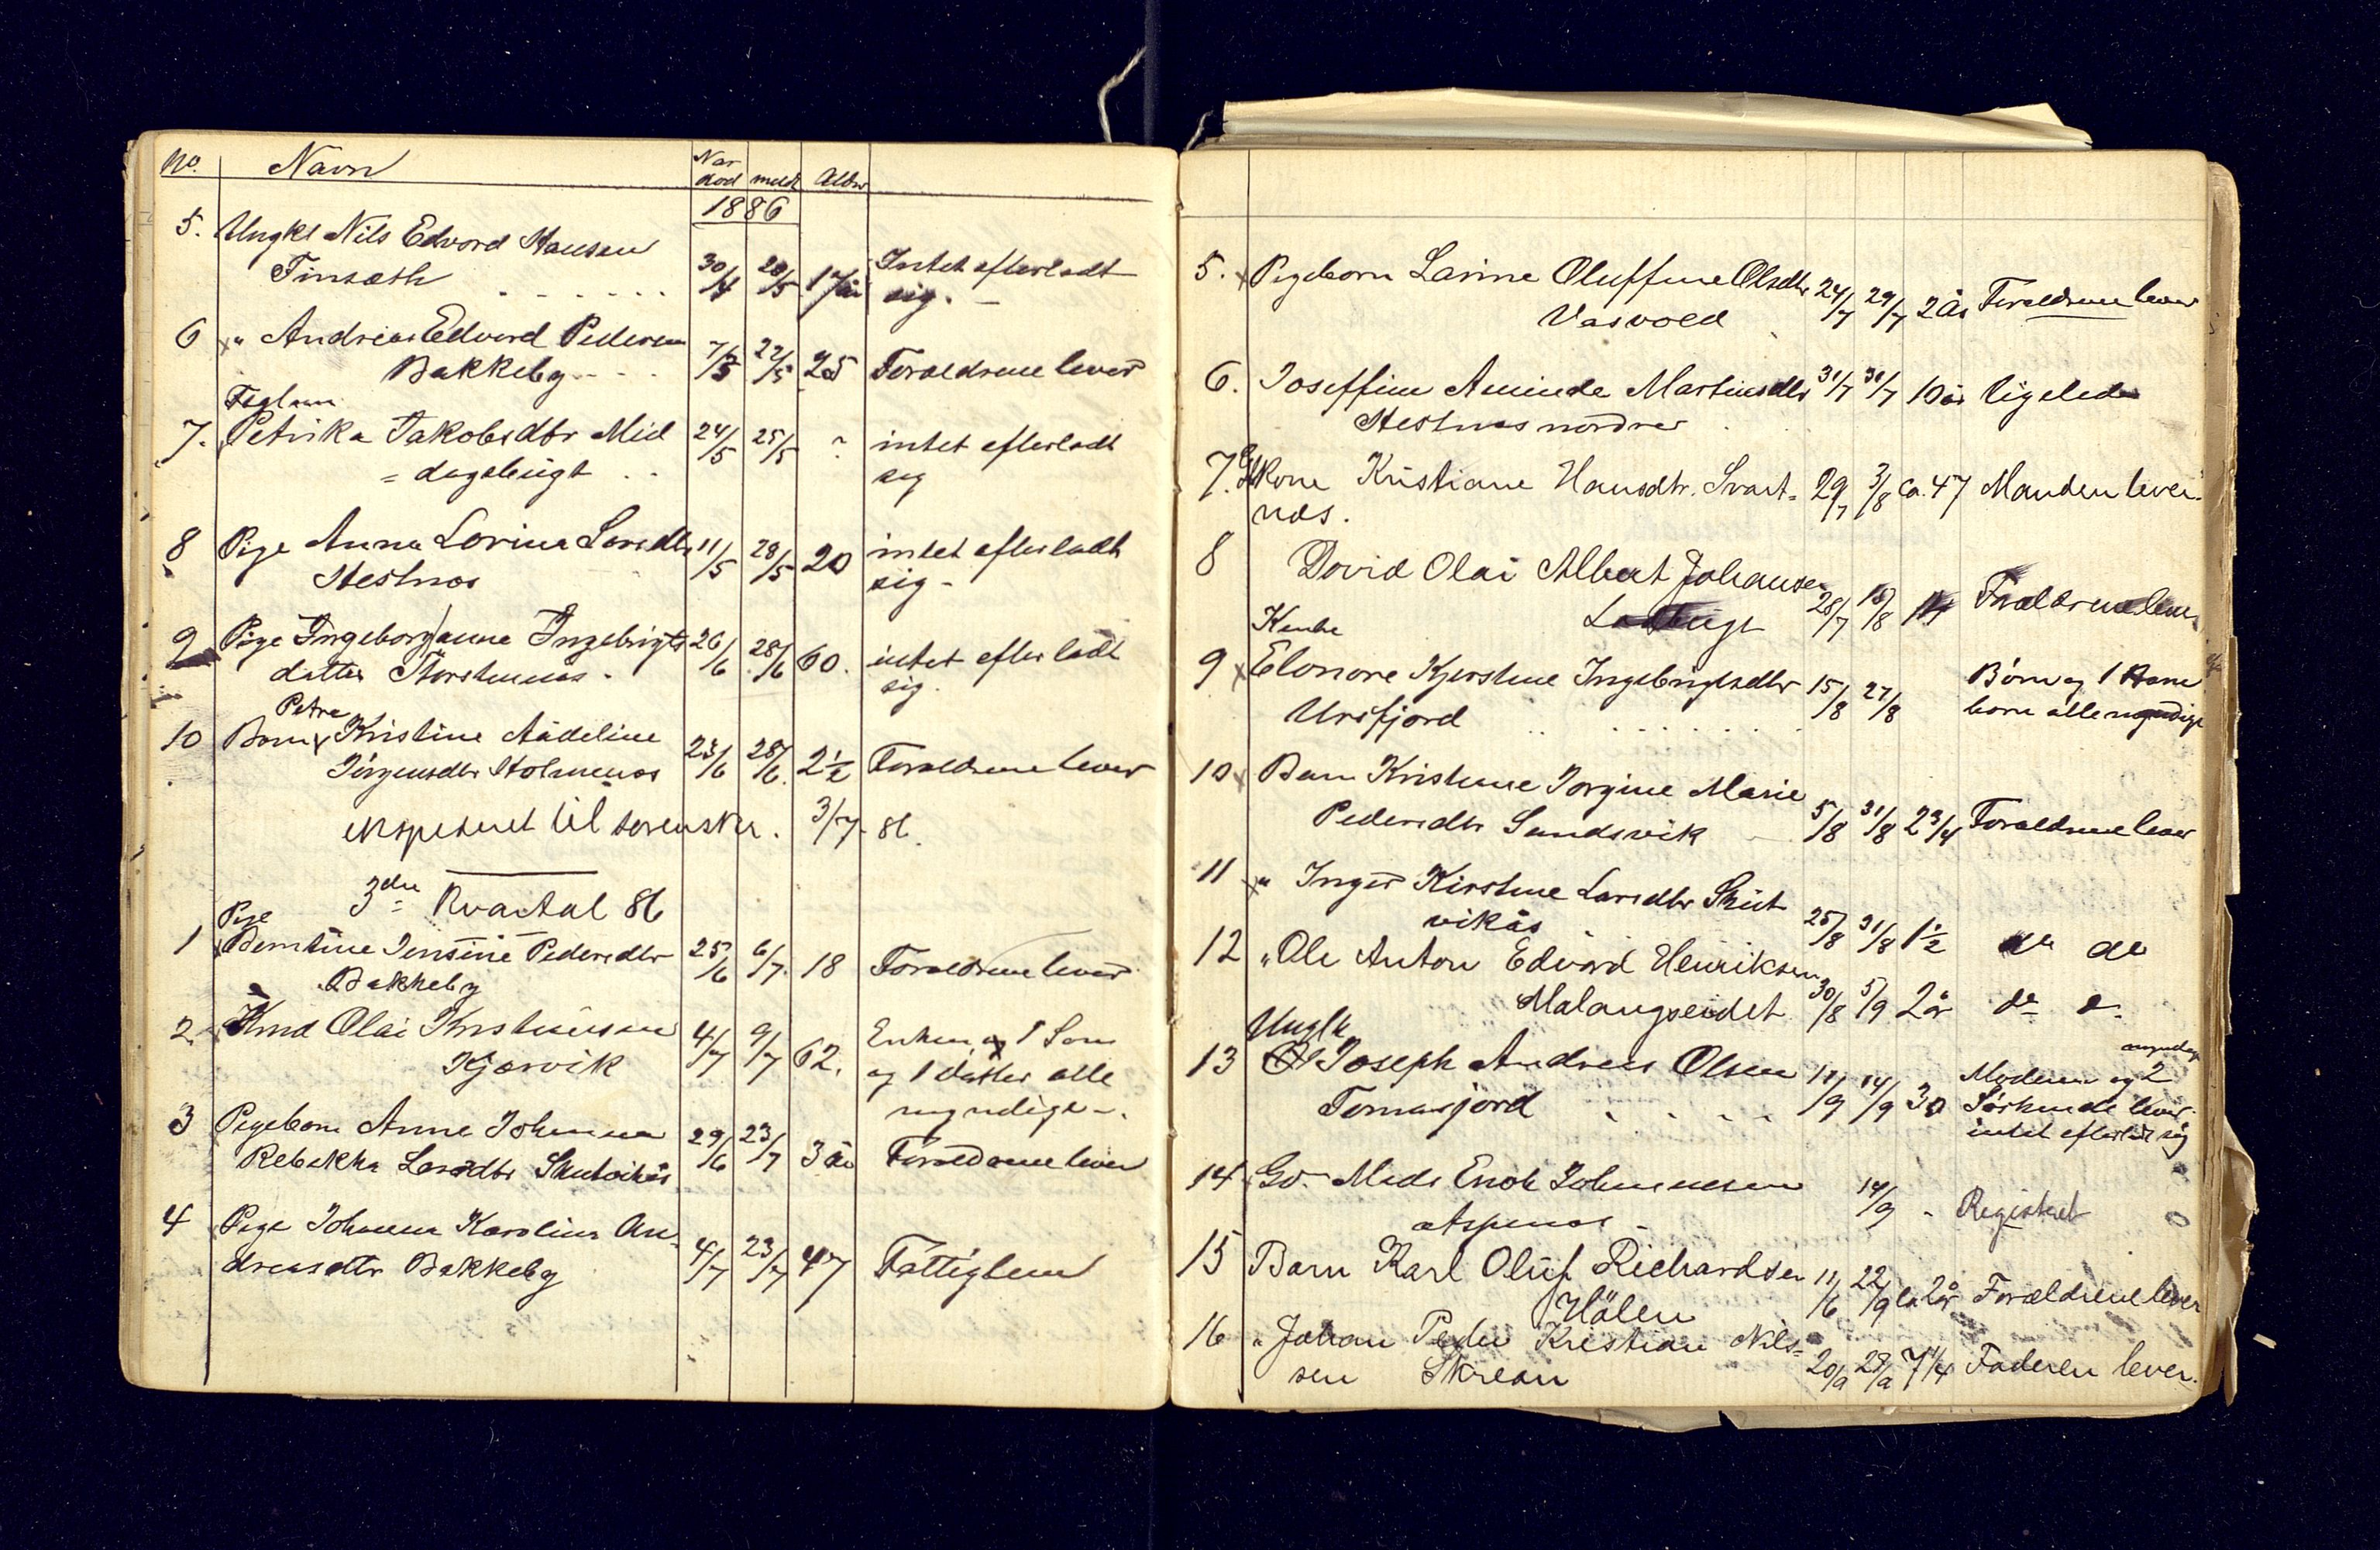 No. Navn Nar død meldt Alder
1886
5. Ungkl Nils Edvard Hansen
Finsæth 30/4 20/5 17 år Intet efterladt
sig. -
6 " Andreas Edvard Pedersen
Bakkeby 7/5 22/5 25 Foreldrene lever
Føglem
7. Petrika Jakobsdtr Mid 24/5 25/5 ? intet efterladt
= dagsbugt sig
8 Pige Anna Lorina Larsdtr 11/5 28/5 20 intet efterladt
Hestnes sig -
9 Pige Ingeborganna Ingebrigts 26/6 28/6 60. intet efterladt
datter Storstennes. sig.
Petra
10 Barn Kristine Aadeline
Jörgensdtr Holmenes 23/6 28/6 2½ Foreldrene lever
expederet til sorenskr. 3/7 - 86.
3die Kvartal 86
Pige
1 Berntine Jensine Pedersdtr 25/6 6/7 18 Foreldrene lever
Bakkeby
2. Knud Olai Kristiansen 4/7 9/7 62. Enken og 1 Søn
Kjærvik og 1 datter alle
myndige -.
3 Pigebarn Anne Johanna 29/6 23/7 3 år Foreldrene lever
Rebekka Larsdtr Skutvikås
4 Pige Johanna Karolina An-
dreasdtr Bakkeby 4/7 23/7 47 Fattiglem
5. Pigebarn Larine Oluffine Olsdtr 24/7 29/7 2 år Foreldrene lever
Vasvold
6. Joseffine Aminda Martinsdtr 31/7 31/7 10 år ligeledes
Hestnes nordre
7. Kone Kristiane Hansdtr. Svart= 29/7 3/8 ca. 47 Manden lever.
nes.
8 David Olai Albert Johansen
28/7 18/8 Forældrene lever
Kenke
9 Elonore Kjerstine Ingebrigtsdtr 15/8 27/8 Børn og 1 Barne
Ursfjord barn alle myndige
10 Barn Kristine Jorgine Marie
Pedersdtr Sandsvik 5/8 31/8 2 3/4 Foreldrene lever
11 " Inger Kirstine Larsdtr Skut
vikås 25/8 31/8 1½ do do
12 " Ole Anton Edvard Henriksen
Malangseidet 30/8 5/9 2 år do do
Ungk
13 Joseph Andreas Olsen 11/9 14/9 30 Moderen og 2 myndige
Tomasjord Söskende lever
intet efterladt sig
14 Gd. Mads Enok Johannesen 14/9 - Registret
Aspenes -
15 Barn Karl Oluf Richardsen 11/6 22/9 ca 2 år Forældrene lever
Hölen
16 " Johan Peder Kristian Nils=
sen Skrean 20/9 29/9 7 1/4 Faderen lever.